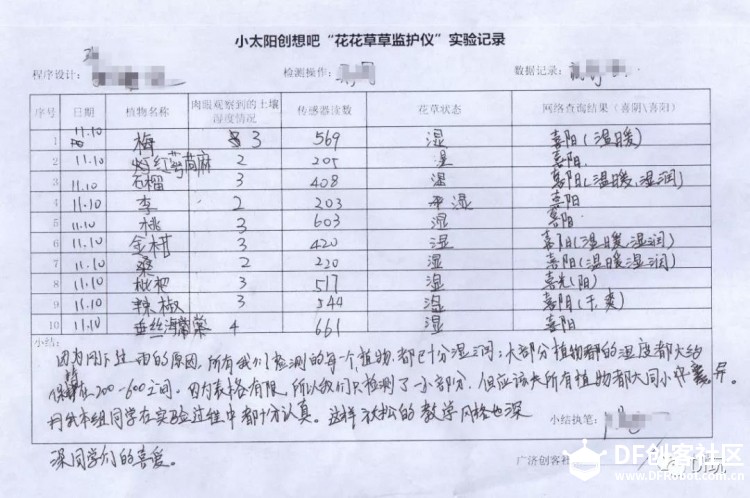 小太阳创想吧“花花草草监护仪”实验记录
程序设计： 检测操作： 数据记录：
序号 日期 植物名称 肉眼观察到的土壤湿度情况 传感器读数 花草状态 网络查询结果（喜阴\喜阳）
1 11.10 梅 3 569 湿 喜阳(温暖)
2 11.10 红萼苘麻 2 205 湿 喜阳.
3 11.10 石榴 3 408 湿 喜阳(温暖、湿润)
4 11.10 李 2 203 湿 喜阳
5 11.10 桃 3 603 湿 喜阳
6 11.10 金柑 3 420 湿 喜阳(温暖湿润)
7 11.10 桑 2 220 湿 喜阳(温暖湿润)
8 11.10 枇杷 3 517 湿 喜光(阳)
9 11.10 辣椒 3 544 湿 喜阳(干爽)
10 11.10 垂丝海棠 4 661 湿 喜阳
小结：
因为刚下过雨的原因，所有我们检测的每一个植物，都已十分湿润；大部分植物都的湿度都大约
保持在200-600之间。因为表格有限，所以我们只检测了一小部分，但应该大所有植物都大同小异。
我本组同学在实验过程中都十分认真。这样放松的教学风格也深
小结执笔：
深同学们的喜爱。
广济创客社
DF创客社区
www.DFRobot.com.cn
DF玩